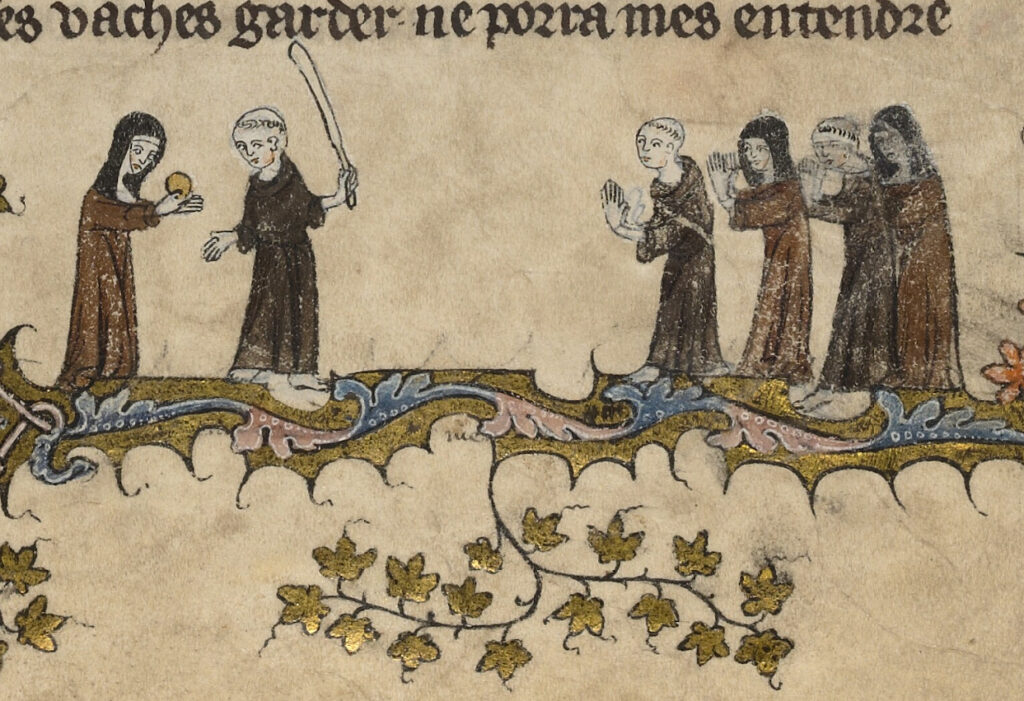 es vaches garder ne porra mes entendre